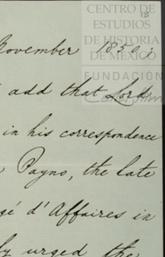 CENTRO DE
ESTUDIOS
DE HISTORIA
DE MÉXICO
FUNDACIÓN
November 1850;
add that Lord
in his correspondence
Payno, the late
gé d'Affaires in
ly urged the